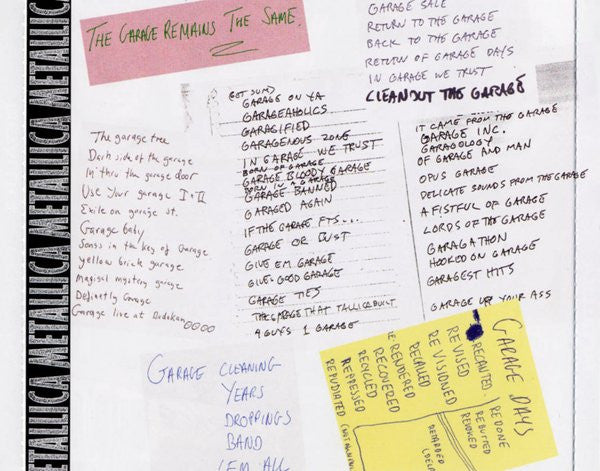 METALLICA METALLICA METALLICA METALLICA
THE GARAGE REMAINS THE SAME.
GARAGE SALE
RETURN TO THE GARAGE
BACK TO THE GARAGE
RETURN OF GARAGE DAYS
IN GARAGE WE TRUST
CLEANOUT THE GARAGE
The garage tree
Dark side of the garage
In thru the garage door
Use Your garage I + II
Exile on garage st.
Garage baby
Songs in the key of Garage
yellow brick garage
Magical mystery garage
Definitly Garage
Garage live at Budokan
GET SUM)
GARAGE ON YA
GARAGEAHOLICS
GARAGIFIED
GARAGENOUS ZONE
IN GARAGE WE TRUST
BORN OF GARAGE
GARAGE BLOODY GARAGE
BORN IN A GARAGE
GARAGE BANNED
GARAGED AGAIN
IF THE GARAGE FTS...
GARAGE OR BUST
GIVE EM GARAGE
GIVE GOOD GARAGE
GARAGE TIES
THE GARAGE THAT TALLICA BUILT
4 GUYS 1 GARAGE
IT CAME FROM THE GARAGE
GARAGE INC.
GARAGOLOGY
OF GARAGE AND MAN
OPUS GARAGE
DELICATE SOUNDS FROM THE GARAGE
A FISTFUL OF GARAGE
LORDS OF THE GARAGE
GARAGATHON
HOOKED ON GARAGE
GARAGEST HITS
GARAGE UP YOUR ASS
GARAGE CLEANING
YEARS
DROPPINGS
BAND
'EM ALL
GARAGE DAYS
REDONE
REBUTTED
REVOKED
RECANTED
REVISED
RE VISIONED
RECALLED
RE RENDERED
RECOVERED
RECYCLED
REPRESSED
REPUDIATED
RETARDED